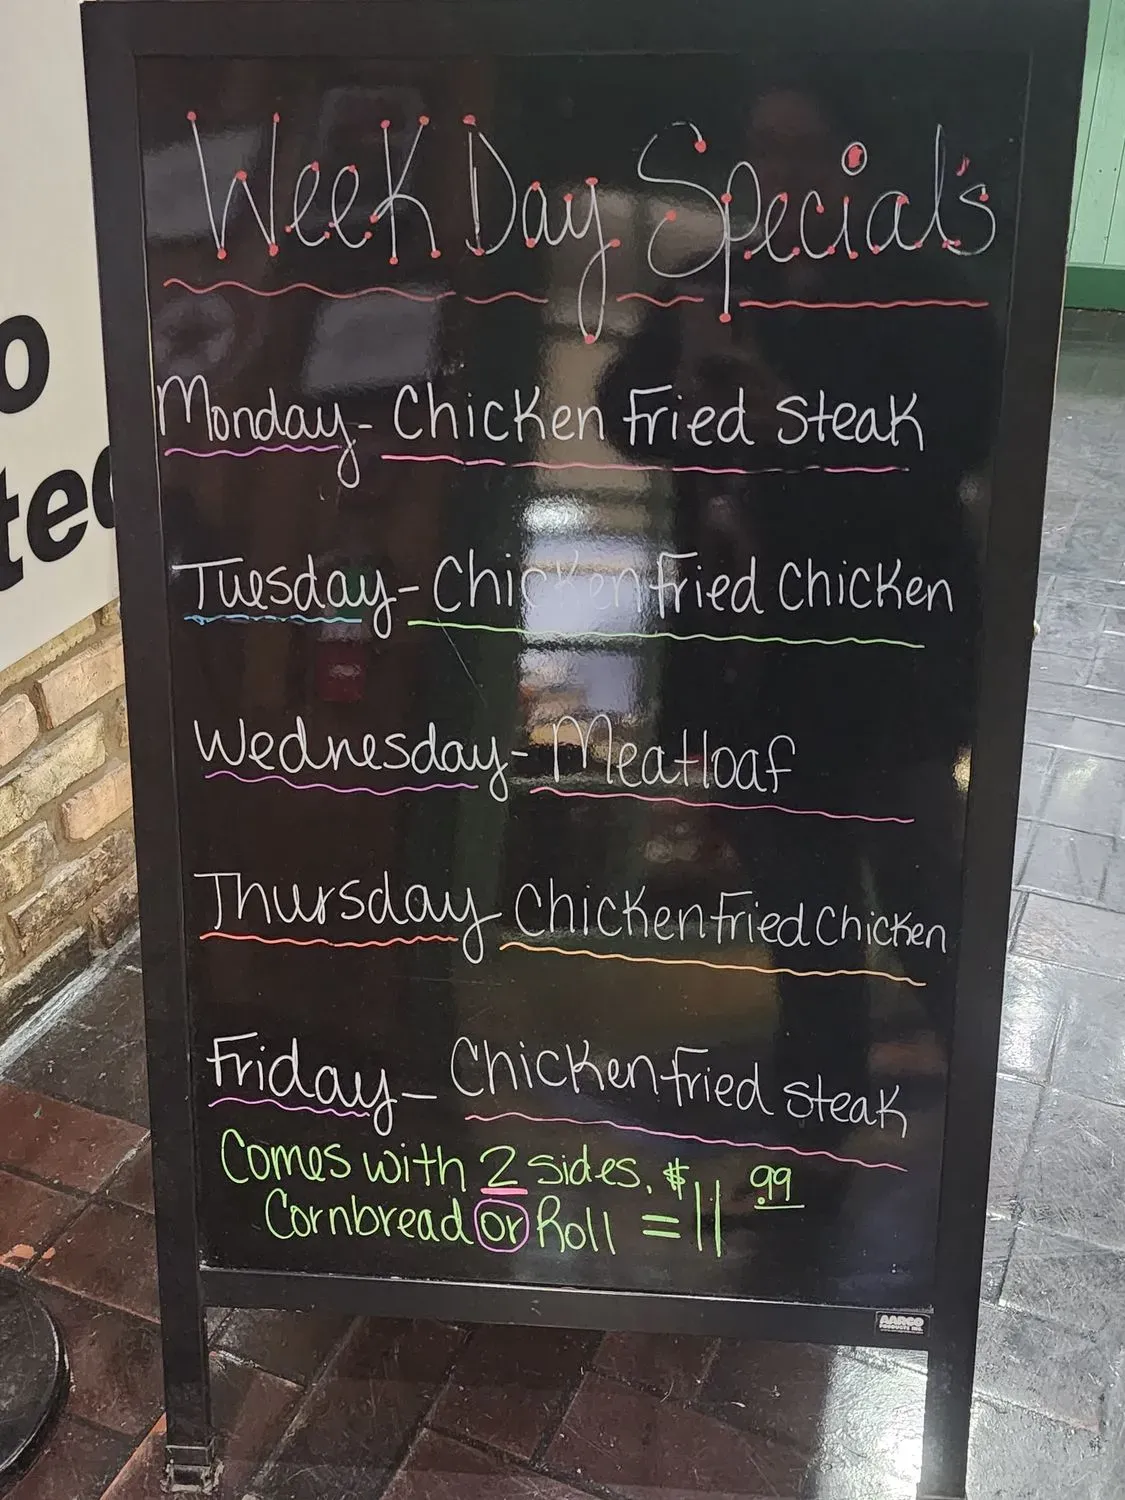 Week Day Special's
Monday - Chicken Fried Steak
Tuesday - Chicken Fried Chicken
Wednesday - Meatloaf
Thursday Chicken Fried Chicken
Friday - Chicken Fried Steak
Comes with 2 sides.
Cornbread or Roll = $11.99
AARCO
PRODUCTS INC.